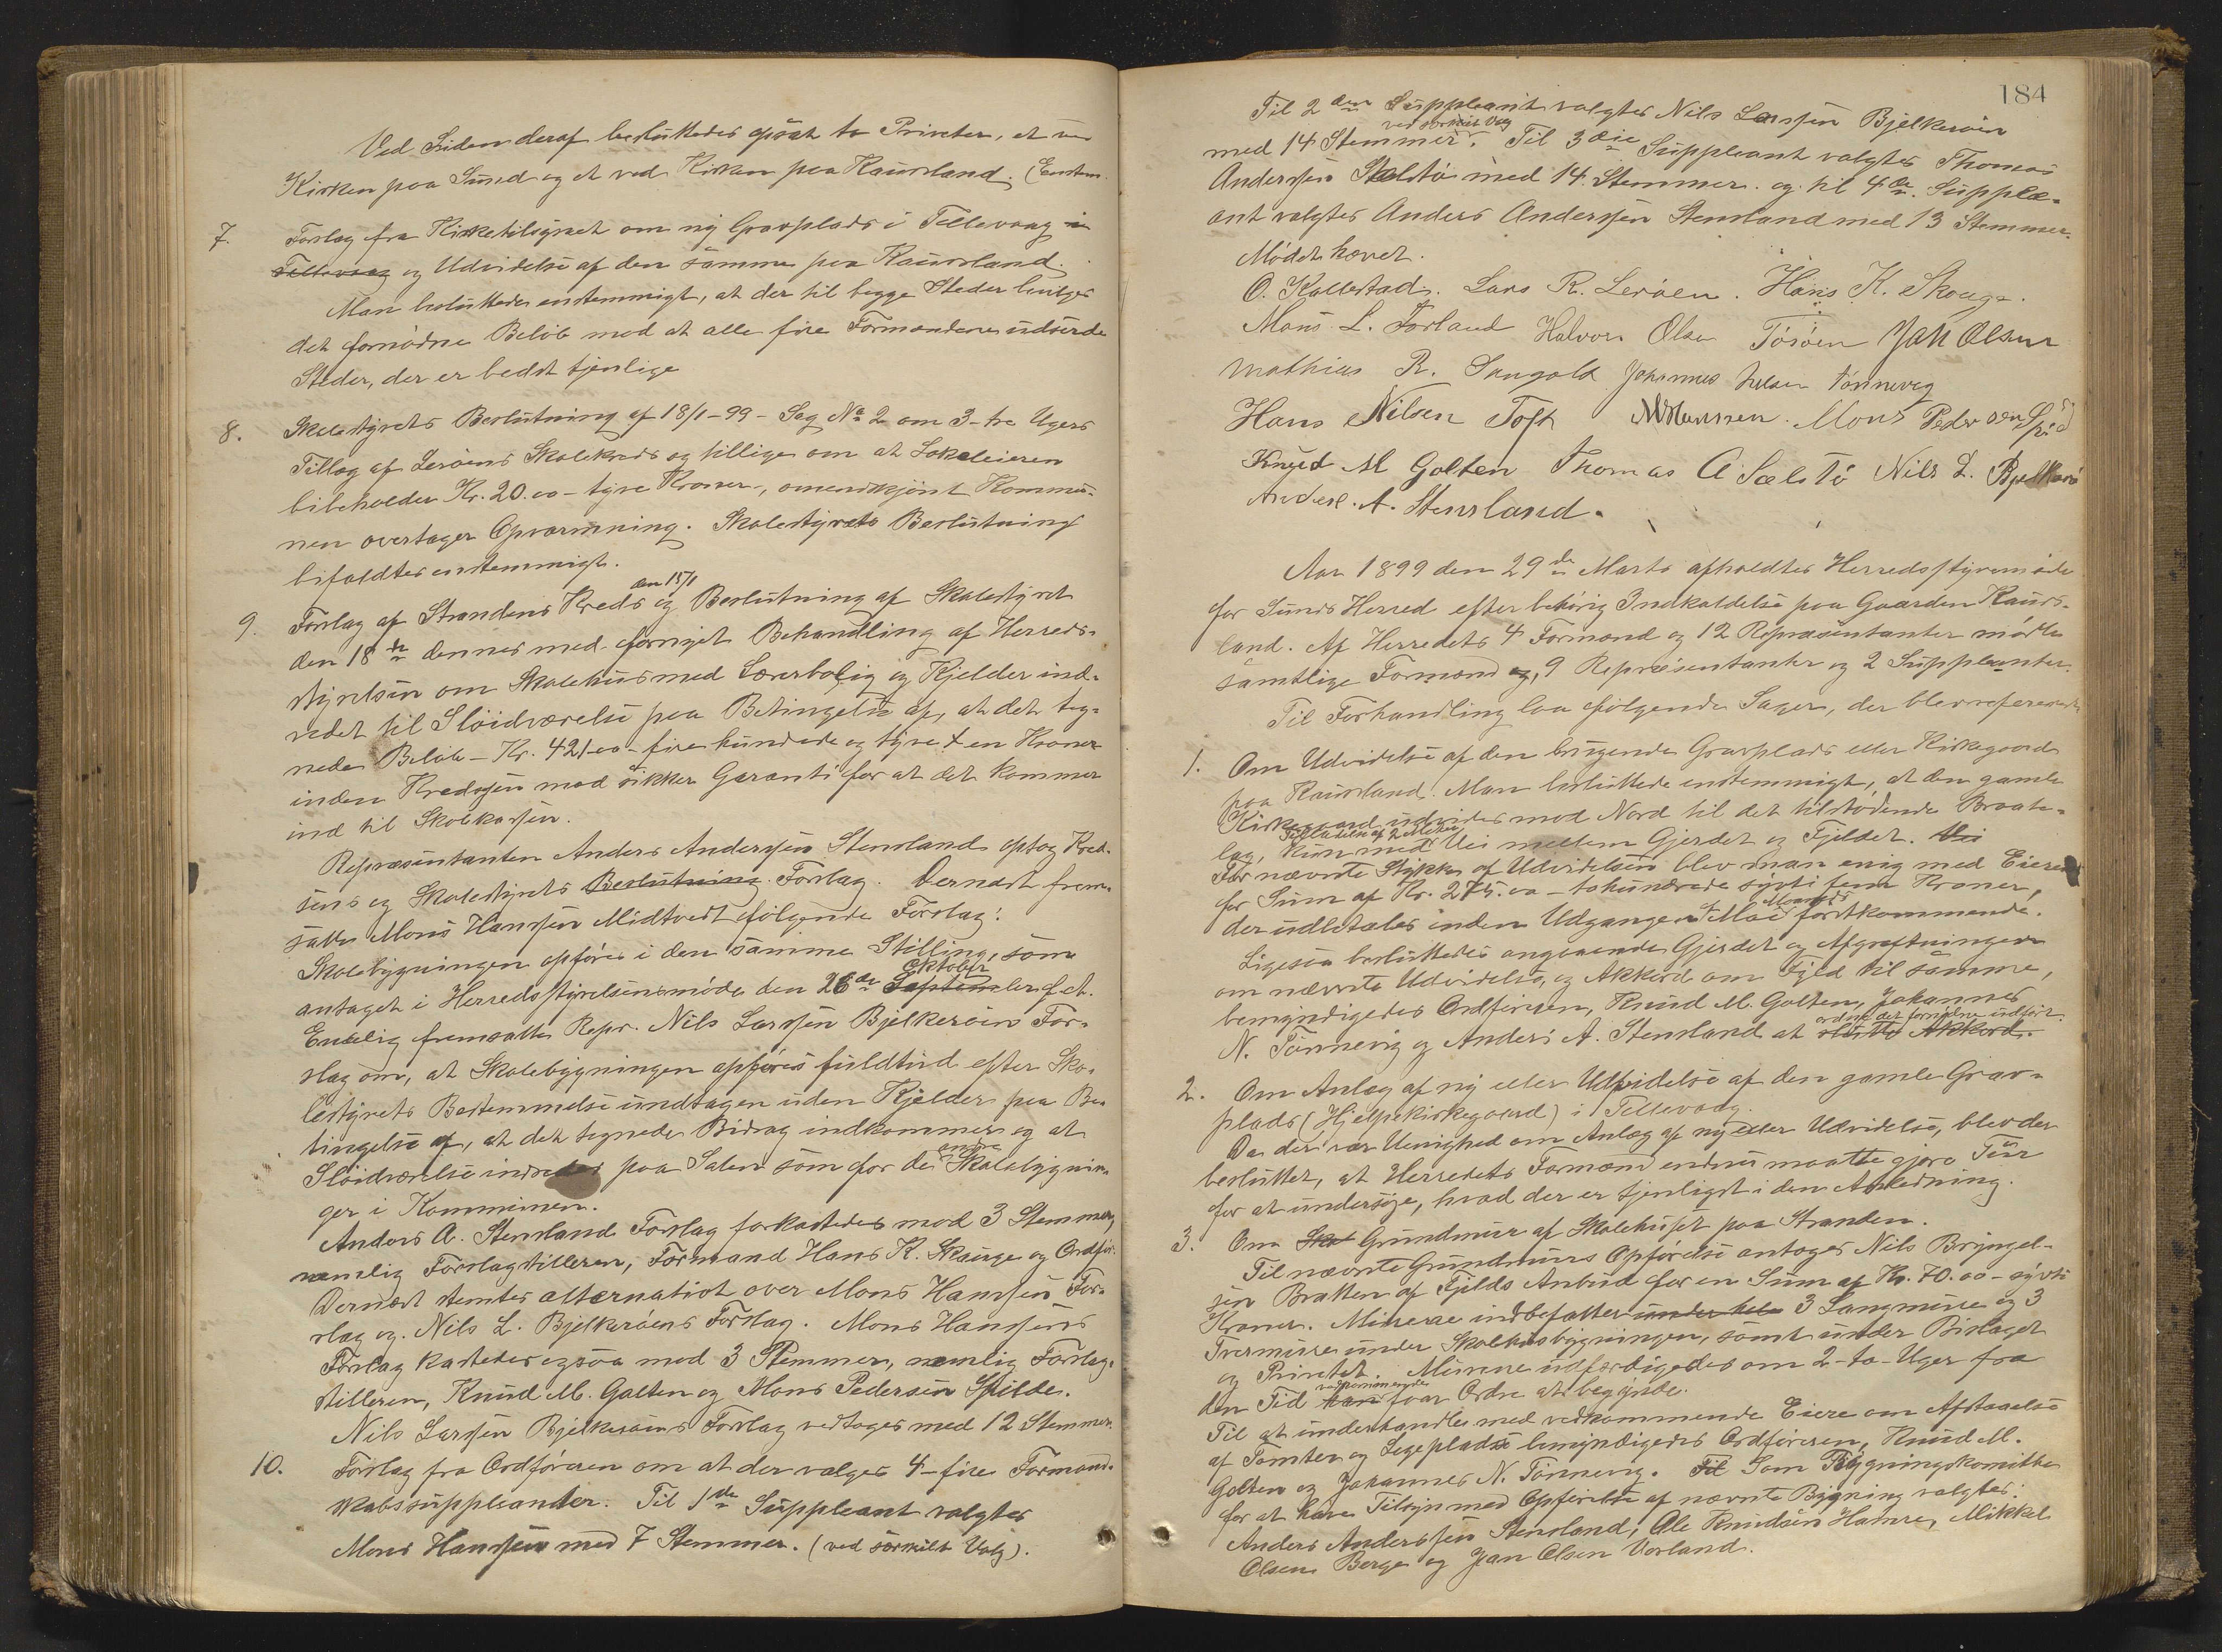 Ved Siden deraf besluttedes opsat to Priveter, et ved
Kirken paa Sund og et ved Kirken paa Kausland. (Enstem.
7. Forslag fra Kirketilsynet om ny Gravplads i Tellevaag i
Tellevaag og Udvidelse af den samme paa Kausland.
Man besluttede enstemmigt, at der til begge Steder benyttes
det fornødne Beløb med at alle fire Formændene udserede
Steder, der er bedst tjenlige
8. Skolestyrets Beslutning af 18/1-99 - Sag No 2 om 3-tre Ugers
Tillæg af Lerøens Skolekreds og tillige om at Lokaleieren
bibeholder Kr. 20.00 - tyve Kroner -, omendskjønt Kommu-
nen overtager Opvarmning. Skolestyrets Beslutning
bifaldtes enstemmigt.
den 15/1
9. Forslag af Strandens Kreds og Beslutning af Skolestyret
den 18de dennes med fornyet Behandling af Herreds-
styrelsen om Skolehus med Lærerbolig og Kjelder ind-
redet til Sløidværelse paa Betingelse af, at det teg-
nede Beløb - Kr. 421.00 - fire hundrede og tyve & en Kroner
inden Kredsen med sikker Garanti for at det kommer
ind til Skolekassen.
Repræsentanten Anders Anderssen Stensland optog Kred-
sens og Skolestyrets Beslutning Forslag. Dernæst frem-
satte Mons Hanssen Midtvedt følgende Forslag:
Skolebygningen opføres i den samme Stilling, som
Oktober
antaget i Herredsstyrelsensmøde den 26de September f. A.
Endelig fremsatte Repr. Nils Larssen Bjelkerøen For-
slag om, at Skolebygningen opføres fuldtud efter Sko-
lestyrets Bestemmelse undtagen uden Kjelder paa Be-
tingelse af, at det tegnede Bidrag indkommer og at
andre
Sløidværelse indredes paa Salen som for de Skolebygnin-
ger i Kommunen.
Anders A. Stensland Forslag forkastedes mod 3 Stemmer,
nemlig Forslagstilleren, Formand Hans K. Skauge og Ordfør.
Dernæst stemtes alternativt over Mons Hanssen For-
slag og Nils L. Bjelkerøens Forslag. Mons Hanssens
Forslag kastedes ogsaa mod 3 Stemmer, nemlig Forslag-
stilleren, Knud M. Golten og Mons Pedersen Spilde.
Nils Larssen Bjelkerøens Forslag vedtoges med 12 Stemmer.
10. Forslag fra Ordføreren om at der vælges 4-fire Formand-
skabssuppleanter. Til 1ste Suppleant valgtes
Mons Hanssen med 7 Stemmer. (ved særskilt Valg).
184
Til 2den Suppleant valgtes Nils Larssen Bjelkerøen
ved særskilt Valg
med 14 Stemmer. Til 3die Suppleant valgtes Thomas
Anderssen Sælstø med 14 Stemmer og til 4de Supple-
ant valgtes Anders Anderssen Stensland med 13 Stemmer.
Mødet hævet.
O. Kallestad. Lars R. Lerøen. Hans K. Skauge.
Mons L. Førland Halvor Olsen Tøsøen Jan Olsen
Mathias R. Sangolt Johannes Nilsen Tønnevig
Hans Nilsen Toft M Hanssen. Mons Pedersen Spild
Knud M Golten Thomas A Sælstø Nils L. Bjelkerø
Anders. A. Stensland.
Aar 1899 den 29de Marts afholdtes Herredsstyremøde
for Sunds Herred efter behørig Indkaldelse paa Gaarden Kaus-
land. Af Herredets 4 Formænd og 12 Repræsentanter mødte
samtlige Formænd og, 9 Repræsentanter og 2 Suppleanter.
Til Forhandling laa følgende Sager, der blev refereret
1. Om Udvidelse af den brugende Gravplads eller Kirkegaard
paa Kausland. Man besluttede enstemmigt, at den gamle
Kirkegaard udvides mod Nord til det tilstødende Braate-
Tilladelse af 2
lag, kun med Vei mellem Gjerdet og Fjeldet. Ved
Før nævnte Stykke af Udvidelsen blev man enig med Eieren
for Sum af Kr. 275.00 - tohundrede sytti fem Kroner,
Maaned
der udbetales inden Udgangen af Mai førstkommende.
Ligesaa besluttedes angaaende Gjerdet og Afgrøftningen
om nævnte Udvidelse, og Akkord om Fyld til samme,
bemyndigedes Ordføreren, Knud M. Golten, Johannes
ordne det fornødne udført.
N. Tønnevig og Anders A. Stensland at slutte Akkord.
2. Om Anlæg af ny eller Udvidelse af den gamle Grav-
plads (Hjelpekirkegaard) i Tellevaag.
Da der var Uenighed om Anlæg af ny eller Udvidelse, blev der
besluttet, at Herredets Formænd endnu maatte gjøre Tur
for at undersøge, hvad der er tjenligst i den Anledning.
3. Om Skol Grundmur af Skolehuset paa Stranden.
Til nævnte Grundmurs Opførelse antages Nils Brynjel-
sen Bratten af Fjelds Anbud for en Sum af Kr. 70.00 - sytti
Kroner. Murene indbefatter under hele 3 Langmure og 3
Tvermure under Skolehusbygningen, samt under Bislaget
og Privetet. Murene udfærdigedes om 2-to-Uger fra
vedkommende
den Tid han faar Ordre at begynde.
Til at underhandle med vedkommende Eiere om Afstaaelse
af Tomten og Legeplads bemyndigedes Ordføreren, Knud M.
Golten og Johannes N. Tønnevig. Til Som Bygningskomitte
for at have Tilsyn med Opførelse af nævnte Bygning valgtes:
Anders Anderssen Stensland, Ole Knudsen Hamre, Mikkel
Olsen Berge og Jan Olsen Vorland.